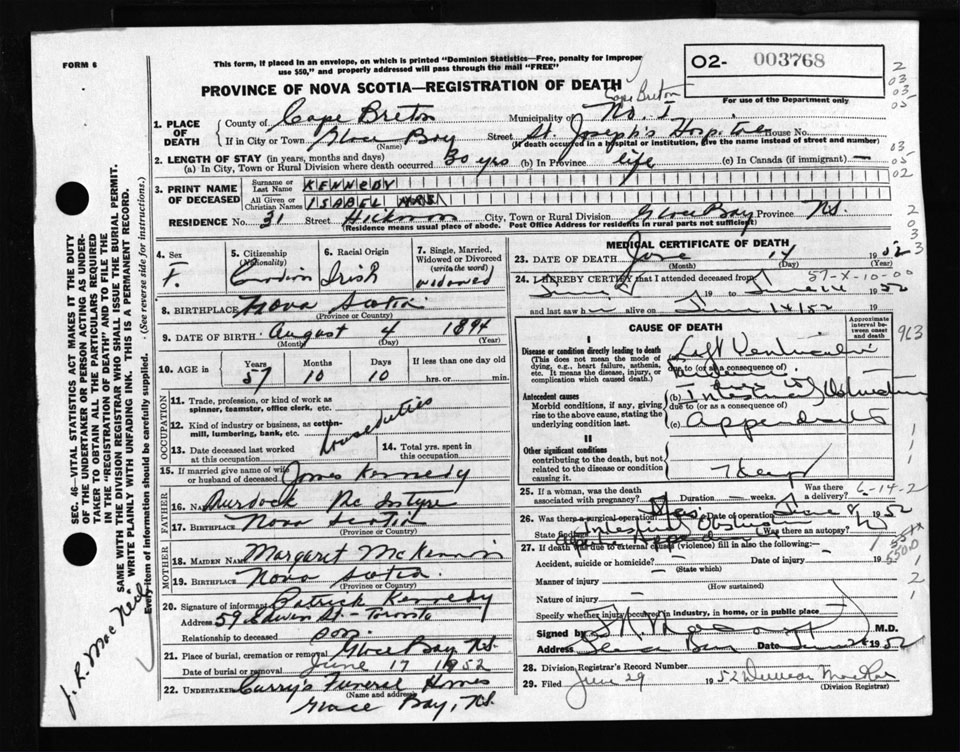 FORM 6
This form, if placed in an envelope, on which is printed "Dominion Statistics—Free, penalty for improper
use $50," and properly addressed will pass through the mail "FREE"
O2- 003768
For use of the Department only
PROVINCE OF NOVA SCOTIA—REGISTRATION OF DEATH
Cape Breton
1. PLACE OF DEATH
County of Cape Breton Municipality of No. 1
If in City or Town Glace Bay Street St. Joseph's Hospital House No.
(Name) (If death occurred in a hospital or institution, give the name instead of street and number)
2. LENGTH OF STAY (in years, months and days)
(a) In City, Town or Rural Division where death occurred 30 yrs (b) In Province life (c) In Canada (if immigrant) —
3. PRINT NAME OF DECEASED
Surname or Last Name KENNEDY
All Given or Christian Names ISABEL MRS
RESIDENCE No. 31 Street Hickman City, Town or Rural Division Glace Bay Province N.S.
(Residence means usual place of abode. Post Office Address for residents in rural parts not sufficient)
4. Sex F.
5. Citizenship (Nationality) Canadian
6. Racial Origin Irish
7. Single, Married, Widowed or Divorced (write the word) widowed
8. BIRTHPLACE Nova Scotia
(Province or Country)
9. DATE OF BIRTH August 4 1894
(Month) (Day) (Year)
10. AGE in Years 57 Months 10 Days 10 If less than one day old hrs. or min.
OCCUPATION
11. Trade, profession, or kind of work as spinner, teamster, office clerk, etc.
12. Kind of industry or business, as cotton-mill, lumbering, bank, etc.
house duties
13. Date deceased last worked at this occupation
14. Total yrs. spent in this occupation
15. If married give name of wife or husband of deceased James Kennedy
FATHER
16. Name Murdock McIntyre
17. Birthplace Nova Scotia
(Province or Country)
MOTHER
18. MAIDEN NAME Margaret McKennon
19. BIRTHPLACE Nova Scotia
(Province or Country)
20. Signature of informant Patrick Kennedy
Address 59 Edwin St - Toronto
Relationship to deceased son
21. Place of burial, cremation or removal Glace Bay, N.S.
Date of burial or removal June 17 1952
22. UNDERTAKER Curry's Funeral Homes
(Name and address)
Glace Bay, N.S.
MEDICAL CERTIFICATE OF DEATH
23. DATE OF DEATH June 14 1952
(Month) (Day) (Year)
57-X-10-00
24. I HEREBY CERTIFY that I attended deceased from
June 19 to June 14 1952
and last saw h alive on June 14/52
CAUSE OF DEATH
Approximate interval between onset and death
963
I
Disease or condition directly leading to death
(This does not mean the mode of dying, e.g., heart failure, asthenia, etc. It means the disease, injury, or complication which caused death.)
Left Ventricular
due to (or as a consequence of)
Antecedent causes
Morbid conditions, if any, giving rise to the above cause, stating the underlying condition last.
(b) Intestinal Obstruction
due to (or as a consequence of)
(c)
II
Other significant conditions
contributing to the death, but not related to the disease or condition causing it.
25. If a woman, was the death associated with pregnancy? Duration — weeks. Was there a delivery? 6-14-2
26. Was there a surgical operation? Yes June 8/ 1952
State findings Intestinal Obstruct Was there an autopsy?
27. If death was due to external causes (violence) fill in also the following:
Accident, suicide or homicide? Date of injury 19
(State which)
Manner of injury
(How sustained)
Nature of injury
Specify whether injury occurred in industry, in home, or in public place
Signed by M.D.
Address Glace Bay Date 1952
28. Division Registrar's Record Number
29. Filed June 29 1952
(Division Registrar)
SEC. 46—VITAL STATISTICS ACT MAKES IT THE DUTY
OF THE UNDERTAKER OR PERSON ACTING AS UNDER-
TAKER TO OBTAIN ALL THE PARTICULARS REQUIRED
IN THE "REGISTRATION OF DEATH" AND TO FILE THE
SAME WITH THE DIVISION REGISTRAR WHO SHALL ISSUE THE BURIAL PERMIT.
WRITE PLAINLY WITH UNFADING INK. THIS IS A PERMANENT RECORD.
Every item of information should be carefully supplied. (See reverse side for instructions.)
J. R. MacNeil